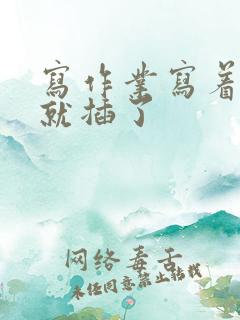 寫作業寫着
就插了
网络毒舌
未经同意禁止转载